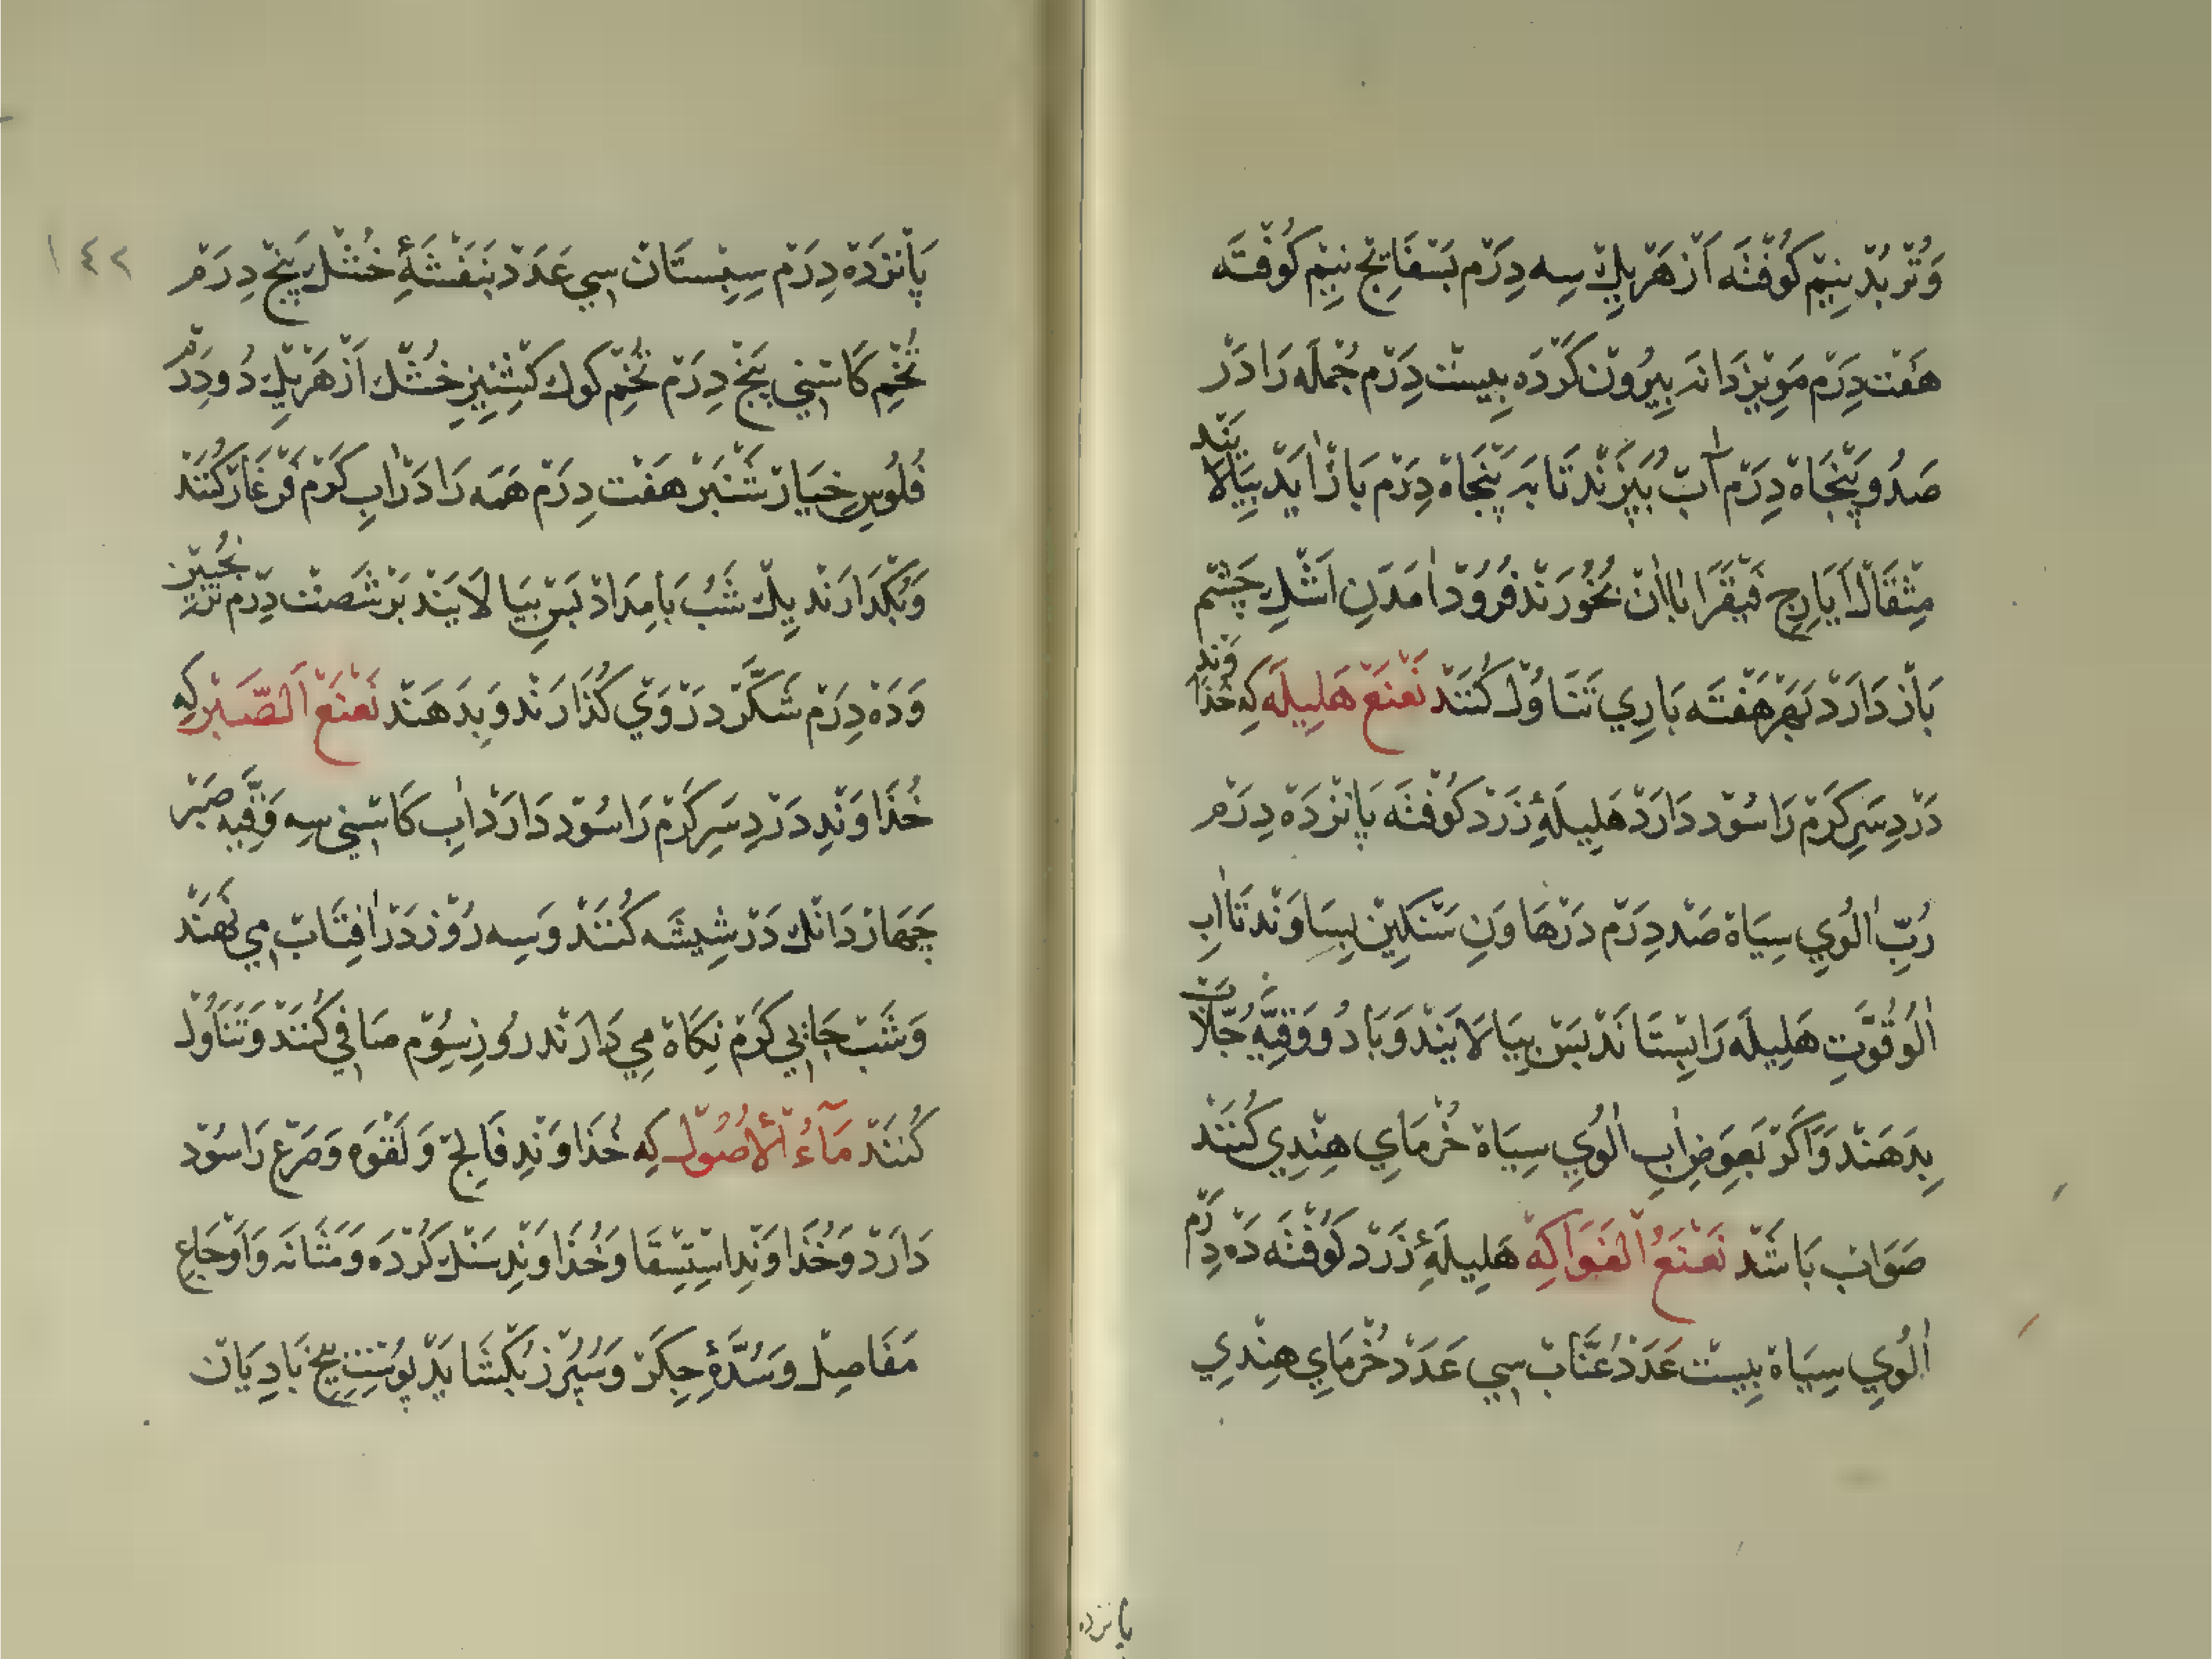 وَتُرْبُدْ نِیمْ کُوفْتَه اَزْ هَرْ یِكْ سِه دِرَمْ بَسْفَایِجْ نِیمْ کُوفْتَه
هَفْت دِرَمْ مَوِیزِ دَانَه بِیرُونْ کَرْدَه بِیسْت دِرَمْ جُمْلَه رَا دَرْ
صَدُ و پَنْجَاهْ دِرَمْ آبْ بِپَزَنْدْ تَا بَه پَنْجَاهْ دِرَمْ بَازْ اٰیَدْ بِپَالَایَنْد
مِثْقَالْ اَیَارِجِ فَیْقَرَا بَااٰنْ بُخُورَنْدْ فُرُودْ اٰمَدَنِ اَشْكِ چَشْم
بَازْ دَارَدْ بَهَرْ هَفْتَه بَارِي تَنَاوُلْ کُنَنَدْ نَعْنَعْ هَلِیلَه کِه خُذَاوَنْدِ
دَرْدِ سَرِ کَرَمْ رَا سُودْ دَارَدْ هَلِیلَهٔ زَرَدْ کُوفْتَه پَانْزَدَهْ دِرَمْ
رُبِّ اٰلُويِ سِیَاهْ صَدْ دِرَمْ دَرْ هَاوَنِ سَنْکِینْ بِسَاوَنْد تَا اٰبِ
اٰلُو قُوَّتِ هَلِیلَه رَا بِسْتَانَدْ بَسْ بِپَالَایَنْد وَبَا دُو وَقِیَّهِ جُلَّابْ
بِدَهَنْد وَاَکَرْ بَعِوَضِ اٰبِ اٰلُويِ سِیَاهْ خُرْمَايِ هِنْدِي کُنَنْد
صَوَابْ بَاشَدْ نَعْنَعُ الْفَوَاکِهْ هَلِیلَهٔ زَرَدْ کُوفْتَه دَه دِرَم
اٰلُويِ سِیَاهْ بِیسْت عَدَدْ عُنَّابْ سِي عَدَدْ خُرْمَايِ هِنْدِي
پانزده
١٤٢
پَانْزَدَه دِرَمْ سِپِسْتَانْ سِي عَدَدْ بَنَفْشَهٔ خُشْكْ پَنْجْ دِرَمْ
تُخْمِ کَاسْنِي پَنْجْ دِرَمْ تُخْمِ کوكْ کِشْنِیزِ خُشْكْ اَزْ هَرْ یِكْ دُو دِرَمْ
فُلُوسِ خِیَارْ شَنْبَرْ هَفْت دِرَمْ هَمَه رَا دَرْ اٰبِ کَرَمْ فَرْغَارْ کُنَنَدْ
وَبُکْذَارَنْد یِكْ شَبُ بَامِدَادْ بَسْ بِپَالَایَنْد بَرْ شَصْت دِرَمْ تَرَنْجُبِینْ
وَدَه دِرَمْ شَکَّرْ دَرْ وَيْ کُذَارَنْد وَبِدَهَنْد نَعْنَعْ الصَّبِرْ کِه
خُذَاوَنْدِ دَرْدِ سَرِ کَرَمْ رَا سُودْ دَارَدْ اٰبِ کَاسْنِي سِه وَقِیَّه صَبِرْ
چَهَارْ دَانْك دَرْ شِیشَه کُنَنْد وَسِه رُوزْ دَرْ اٰفِتَابْ مِي نَهَنْد
وَشَبْ جَايِي کَرَمْ نِکَاهْ مِي دَارَنْد رُوزِ سِوُمْ صَافِي کُنَنَدْ وَتَنَاوُلْ
کُنَنَدْ مَآءُ الْاُصُولْ کِه خُذَاوَنْدِ فَالِجْ وَ لَقْوَه وَصَرْع رَا سُودْ
دَارَدْ وَخُذَاوَنْدِ اِسْتِسْقَا وَخُذَاوَنْدِ سَنْكِ کُرْدَه وَمَثَانَه وَاَوْجَاعِ
مَفَاصِلْ وَسُدَّهٔ جِکَرْ وَسُپُرْز بُکْشَایَدْ پُوسْتِ بِیخِ بَادِیَانْ